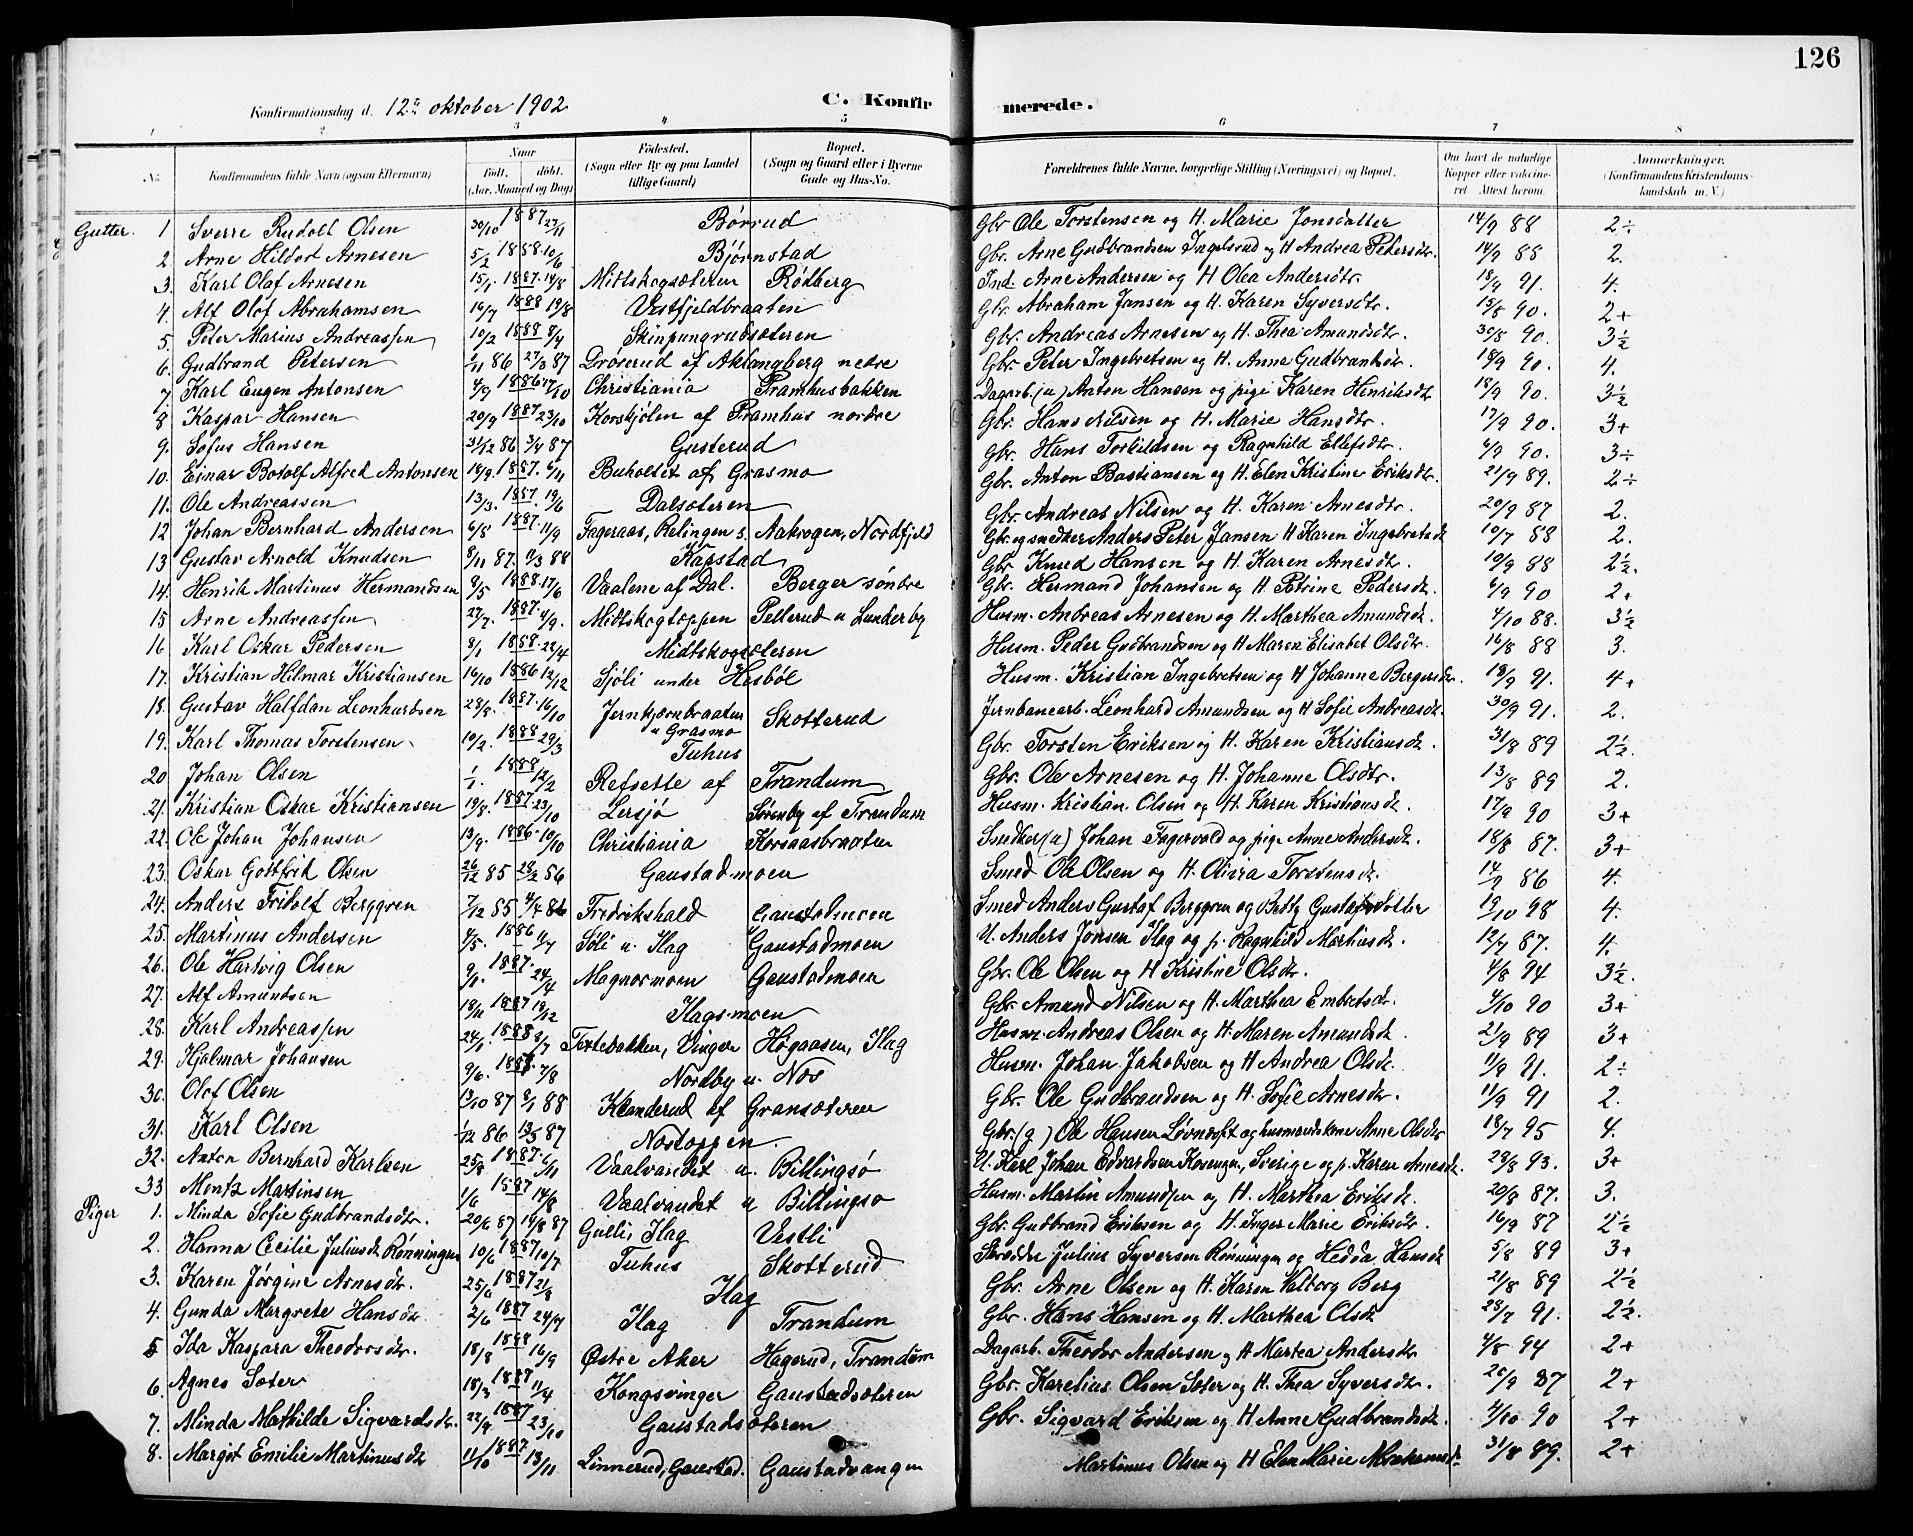 126
Konfirmationsdag d. 12te oktober 1902 C. Konfirmerede.
1 2 3 4 5 6 7 8
No. Konfirmandens fulde Navn (ogsaa Efternavn) Naar født. døbt. (Aar, Maaned og Dag) Fødested. (Sogn eller By og paa Landet tillige Gaard) Bopæl. (Sogn og Gaard eller i Byerne Gade og Hus-No. Forældrenes fulde Navne, borgerlige Stilling (Næringsvei) og Bopæl. Om havt de naturlige Kopper eller vaccineret Attest herom. Anmærkninger. (Konfirmandens Kristendomskundskab m. V.)
Gutter. 1 Sverre Rudolf Olsen 30/10 1887 27/11 Børrud Gbr Ole Torstensen og H. Marie Jonsdatter 14/9 88 2÷
2. Arne Hildor Arnesen 5/2 1888 10/6 Bjørnstad Gbr. Arne Gudbrandsen Ingelsrud og H Andrea Pedersdtr. 14/9 88 2.
3. Karl Olaf Arnesen 15/1 1887 14/8 Midtskogsæteren Rødberg Ind. Arne Andersen og H Olea Andersdtr 18/9 91. 4.
4. Alf Olof Abrahamsen 16/7 1888 19/8 Vestfjeldbraaten Gbr. Abraham Jansen og H. Karen Syversdtr. 15/8 90. 2+
5. Peter Marius Andreassen 10/2 1888 8/4 Skinpungrudsæteren Gbr. Andreas Arnesen og H. Thea Amundsdtr. 30/8 90. 3½
6. Gudbrand Petersen 1/11 86 27/3 87 Drøverud af Aklangberg nedre Gbr. Peter Ingebretsen og H. Anne Gudbrandsdr. 18/9 90. 4.
7. Karl Eugen Antonsen 4/9 1886 17/10 Christiania Framhusbakken Dagarb. (u) Anton Hansen og pige Karen Henriksdt 18/9 90. 3½
8 Kaspar Hansen 20/9 1887 23/10 Korshjølen af Framhus nordre Gbr. Hans Nilsen og H. Marie Hansdtr. 17/9 90. 3+
9. Sofus Hansen 31/12 86 3/4 87 Gusterud Gbr. Hans Torkildsen og Ragnhild Ellefsdtr. 6/9 90. 3÷
10. Einar Botolf Alfred Antonsen 18/9. 1887. 6/11 Buholtet af Grasmo Gbr. Anton Bastiansen og H. Elen Kristine Eriksdtr. 21/9 89. 2÷
11. Ole Andreassen 13/3. 1887. 19/6 Dalsæteren Gbr. Andreas Nilsen og H. Karen Arnesdtr. 20/9 87 2.
12 Johan Bernhard Andersen 6/8 1887. 11/9 Fageraas, Rælingen s. Aakrogen, Nordfjeld Gbr og snedker Anders Peter Jansen H Karen Ingebretsdt 10/7 88 2.
13 Gustav Arnold Knudsen 8/11 87. 11/3 88 Kapstad Gbr Knud Hansen og H. Karen Arnesdtr. 10/9 88 2½.
14. Henrik Martinus Hermandsen 8/5 1888. 17/6 Vaalene af Dal. Berger søndre Gbr. Hermand Johansen og H Petrine Pedersdt. 6/9 90 2+
15 Arne Andreassen 27/7. 1887. 4/9. Midtskogtoppen Pelterud u Lunderby Husm. Andreas Arnesen og H. Marthea Amundsdt. 4/10 88. 3½
16 Karl Oskar Pedersen 8/1 1888. 22/4 Midtskogsæteren Husm. Peder Gudbrandsen og H Maren Elisabet Olsdtr. 16/8 88 3.
17. Kristian Hilmar Kristiansen 16/10 1886 12/12 Sjøli under Hesbøl Husm. Kristian Ingebretsen og H Johanne Bergersdr. 18/9 91. 4+
18. Gustav Halfdan Leonhardsen 28/8. 1887. 16/10 Jernkjørnbraaten u Grasmo Skotterud Jernbanearb. Leonhard Amundsen og H Sofie Andreasdt. 30/9 91. 2.
19. Karl Thomas Torstensen 10/2. 1888 29/3 Tuhus Gbr. Torsten Eriksen og H. Karen Kristiansdt. 31/8 89 2½.
20 Johan Olsen 1/1. 1888 12/2 Refsette af Trandum Gbr. Ole Arnesen og H. Johanne Olsdtr. 13/8 89 2.
21. Kristian Oskar Kristiansen 19/8. 1887. 23/10 Lersjø Sørenby af Trandum Husm. Kristian Olsen og H. Karen Kristiansdt. 17/9 90 3+
22. Ole Johan Johansen 13/9. 1886. 10/10 Christiania Korsaasbraaten Snedker (u) Johan Fagervold og pige Anne Andersdt. 18/8 87. 3+
23. Oskar Gottfrid Olsen 26/12 85 28/2 86 Gaustadmoen Smed Ole Olsen og H. Olivia Torstensdt. 14/9 86 4.
24. Anders Fridolf Berggren 7/12 85 4/4 86 Fredrikshald Gaustadmoen Smed Anders Gustaf Berggren og Betty Gustafsdotter 19/10 98 4.
25. Martinus Andersen 4/5. 1886 11/7 Sjøli u. Ilag Gaustadmoen U. Anders Jonsen Ilag og p. Ragnhild Martinsdt. 12/7 87. 4.
26. Ole Hartvig Olsen 9/1. 1887. 24/4 Magnormoen Gaustadmoen Gbr. Ole Olsen og H Kristine Olsdr. 4/8 94 3½.
27. Alf Amundsen 18/11 1887 18/12 Ilagsmoen Gbr. Amund Nilsen og H. Marthea Embretsdt. 4/10 90 3+
28. Karl Andreassen 24/1. 1888 8/7 Tortebakken, Vinger Høgaasen, Ilag Husm. Andreas Olsen og H. Maren Amundsdt. 21/9 89 3+
29. Hjalmar Johansen 9/6. 1887. 7/8 Nordby u. Næs Husm. Johan Jakobsen og H Andrea Olsdt. 11/9 91. 2÷
30. Olof Olsen 13/10 87 8/1 88 Klanderud af Gransæteren Gbr. Ole Gudbrandsen og H. Sofie Arnesdtr. 11/9 91 2.
31. Karl Olsen 1/12 86 13/3 87 Nostoppen. Gbr. (g) Ole Hansen Løvndoft og husmandsenke Anne Olsdtr 18/7 95 4.
32. Anton Bernhard Karlsen 25/8 1887. 6/11 Vaalvandet u. Billingsø U. Karl Johan Edvardsen Rosengen, Sverige og p. Karen Arnesdt. 28/8 93. 3+
33 Mentz Martinsen 1/6 1887 14/8 Vaalvandet u Billingsø Husm. Martin Amundsen og H. Marthea Eriksdt. 20/8 87. 3.
Piger 1. Minda Sofie Gudbrandsdtr. 20/6 87 18/8 87 Gulli, Ilag Vestli Gbr. Gudbrand Eriksen og H. Inger Marie Eriksdtr. 16/9 87 2½
2. Hanna Cecilie Juliusdt Rønningen 10/6 1887 10/7 Tuhus Skotterud Skrædder Julius Syversen Rønningen og Hedda Hansdt 5/8 89 3+
3. Karen Jørgine Arnesdtr. 25/6 1887 21/8 Ilag Gbr. Arne Olsen og H. Karen Valborg Berg 21/8 89 2½
4. Gunda Margrete Hansdtr. 2/6 1887 24/7 Ilag Trandum Gbr. Hans Hansen og H. Marthea Olsdt 28/7 91. 2½.
5 Ida Kaspara Theodorsdtr. 18/8 1888 16/9 Østre Aker Hagerud, Trandum Dagarb. Theodor Andersen og H Martea Andersdtr 4/8 94 2+
6. Agnes Sæter 18/3 1887 11/4 Kongsvinger Gaustadsæteren Gbr. Karelius Olsen Sæter og H. Thea Syversdtr. 20/9 87 2+
7. Minda Mathilde Sigvardsdtr. 22/9 1887 23/10 Gaustadsæteren Gbr. Sigvard Eriksen og H Anne Gudbrandsdt. 4/10 90 2+
8. Margit Emilie Martinusdt 11/10 1887 13/11 Linnerud, Gaustad. Gaustadvangen Martinus Olsen og H Elen Marie Abrahamsdt. 31/8 89. 2+